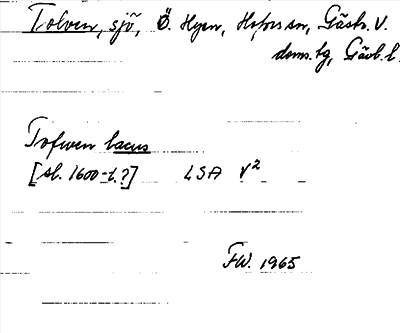 Tolven, sjö, Ö. Hyen, Hofors sn, Gästr. V.
doms.lg, Gävl. l.
Tofwen lacus
[sl. 1600-t.?] LSA V²
FW. 1965